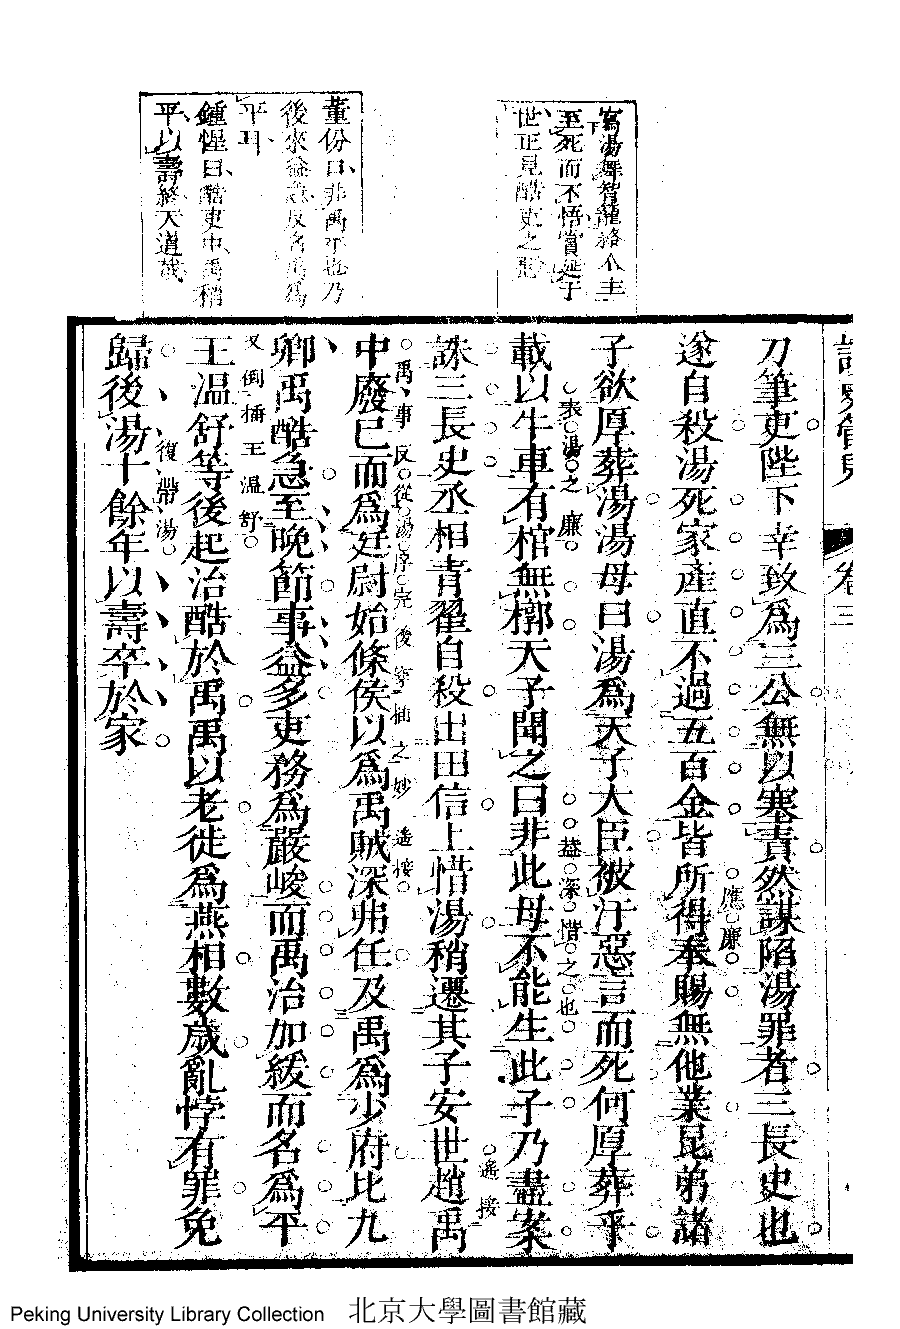 寫湯舞智籠絡人主
至死而不悟賞延于
世正見酷吏之
董份曰非禹平也乃
後來益急反名禹爲
平耳
鍾惺曰酷吏中禹稍
平以壽終天道哉
卷三
刀筆吏陛下幸致爲三公無以塞責然謀陷湯罪者三長史也
遂自殺湯死家產直不過五百金皆所得奉賜無他業昆弟諸
應廉
子欲厚葬湯湯母曰湯爲天子大臣被汙惡言而死何厚葬乎
表湯之廉
益深惜之也
載以牛車有棺無槨天子聞之曰非此母不能生此子乃盡案
誅三長史丞相青翟自殺出田信上惜湯稍遷其子安世趙禹
遙接
禹事反從湯序完後穿插之妙
遙接
中廢已而爲廷尉始條侯以爲禹賊深弗任及禹爲少府比九
卿禹酷急至晚節事益多吏務爲嚴峻而禹治加緩而名爲平
又倒插王溫舒
王温舒等後起治酷於禹禹以老徙爲燕相數歲亂悖有罪免
復帶湯
歸後湯十餘年以壽卒於家
Peking University Library Collection 北京大學圖書館藏